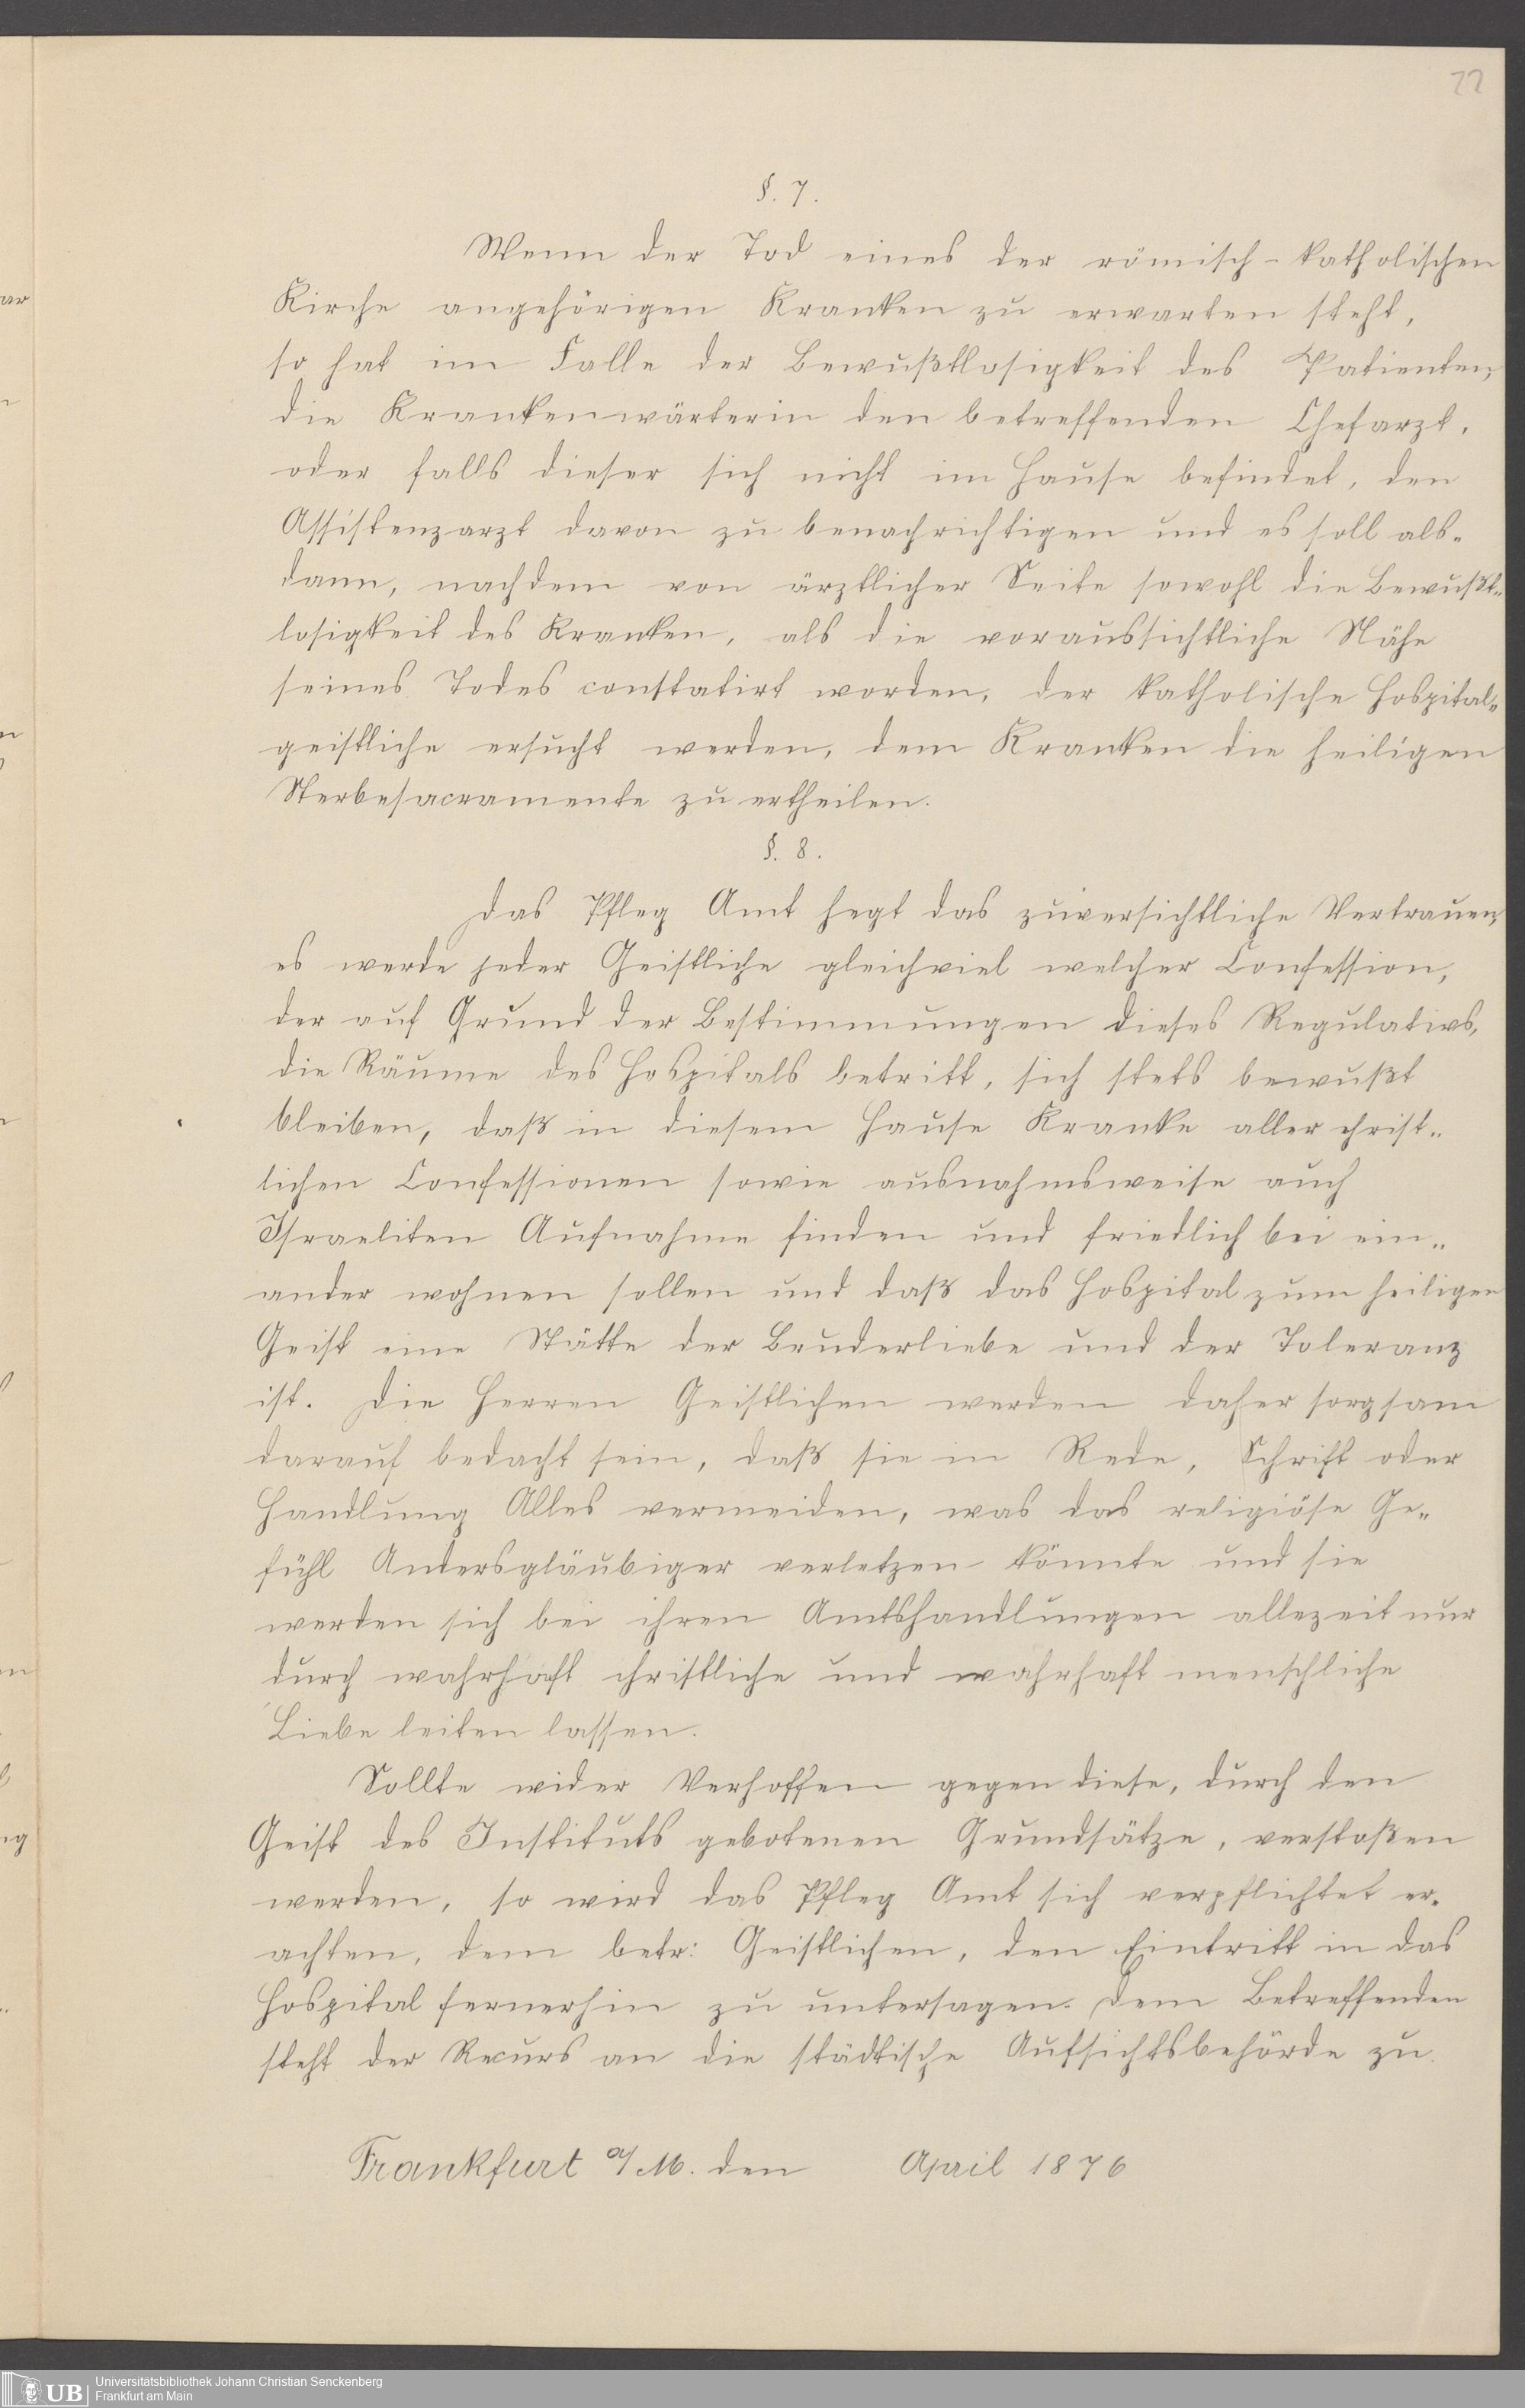 22
§. 7.
Wenn der Tod eines der römisch-katholischen
Kirche angehörigen Kranken zu erwarten steht,
so hat im Falle der Bewußtlosigkeit des Patienten,
die Krankenwärterin den betreffenden Chefarzt,
oder falls dieser sich nicht im Hause befindet, den
Assistenzarzt davon zu benachrichtigen und es soll als-
dann, nachdem von ärztlicher Seite sowohl die Bewußt-
losigkeit des Kranken, als die voraussichtliche Nähe
seines Todes constatirt worden, der katholische Hospital-
geistliche ersucht werden, dem Kranken die heiligen
Sterbesacramente zu ertheilen.
§. 8.
Das Pfleg Amt hegt das zuversichtliche Vertrauen,
es werde jeder Geistliche gleichviel welcher Confession,
der auf Grund der Bestimmungen dieses Regulativs,
die Räume des Hospitals betritt, sich stets bewußt
bleiben, daß in diesem Hause Kranke aller christ-
lichen Confessionen sowie ausnahmsweise auch
Israeliten Aufnahme finden und friedlich bei ein-
ander wohnen sollen und daß das Hospital zum heiligen
Geist eine Stätte der Bruderliebe und der Toleranz
ist. Die Herren Geistlichen werden daher sorgsam
darauf bedacht sein, daß sie in Rede, Schrift oder
Handlung Alles vermeiden, was das religiöse Ge-
fühl Andersgläubiger verletzen könnte und sie
werden sich bei ihren Amtshandlungen allezeit nur
durch wahrhaft christliche und wahrhaft menschliche
Liebe leiten lassen.
Sollte wider Verhoffen gegen diese, durch den
Geist des Instituts gebotenen Grundsätze, verstoßen
werden, so wird das Pfleg Amt sich verpflichtet er-
achten, dem betr: Geistlichen, den Eintritt in das
Hospital fernerhin zu untersagen. Dem Betreffenden
steht der Recurs an die städtische Aufsichtsbehörde zu.
Frankfurt a/M. den April 1876
UB Universitätsbibliothek Johann Christian Senckenberg
Frankfurt am Main